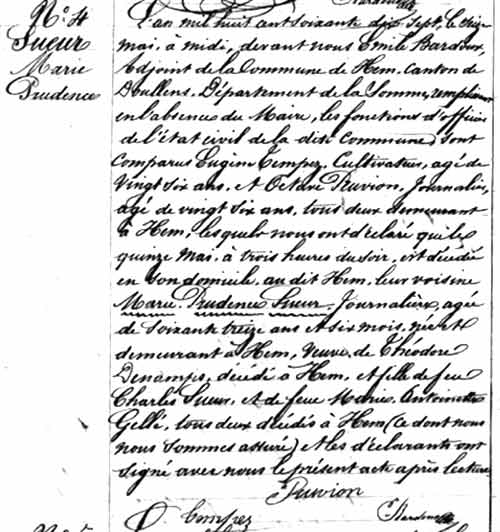 N° 4
Sueur
Marie
Prudence
L'an mil huit cent soixante dix sept, le seize
mai, à midi, devant nous Emile Baroux,
Adjoint de la Commune de Hem, Canton de
Doullens, Département de la Somme, remplissant
en l'absence du Maire, les fonctions d'officier
de l'état civil de la dite Commune, sont
comparus Eugène Tempez, Cultivateur, agé de
vingt six ans, et Octave Pruvion, Journalier,
agé de vingt six ans, tous deux demeurant
à Hem, lesquels nous ont déclaré que le
quinze Mai, à trois heures du soir, est décédée
en son domicile, au dit Hem, leur voisine
Marie Prudence Sueur, Journalière, agée
de soixante treize ans et six mois, née et
demeurant à Hem, Veuve de Théodore
Denamps, décédé à Hem, et fille de feu
Charles Sueur, et de feue Marie Antoinette
Gellé, tous deux décédés à Hem (ce dont nous
nous sommes assuré) et les déclarants ont
signé avec nous le présent acte après lecture.
Pruvion
Tempez